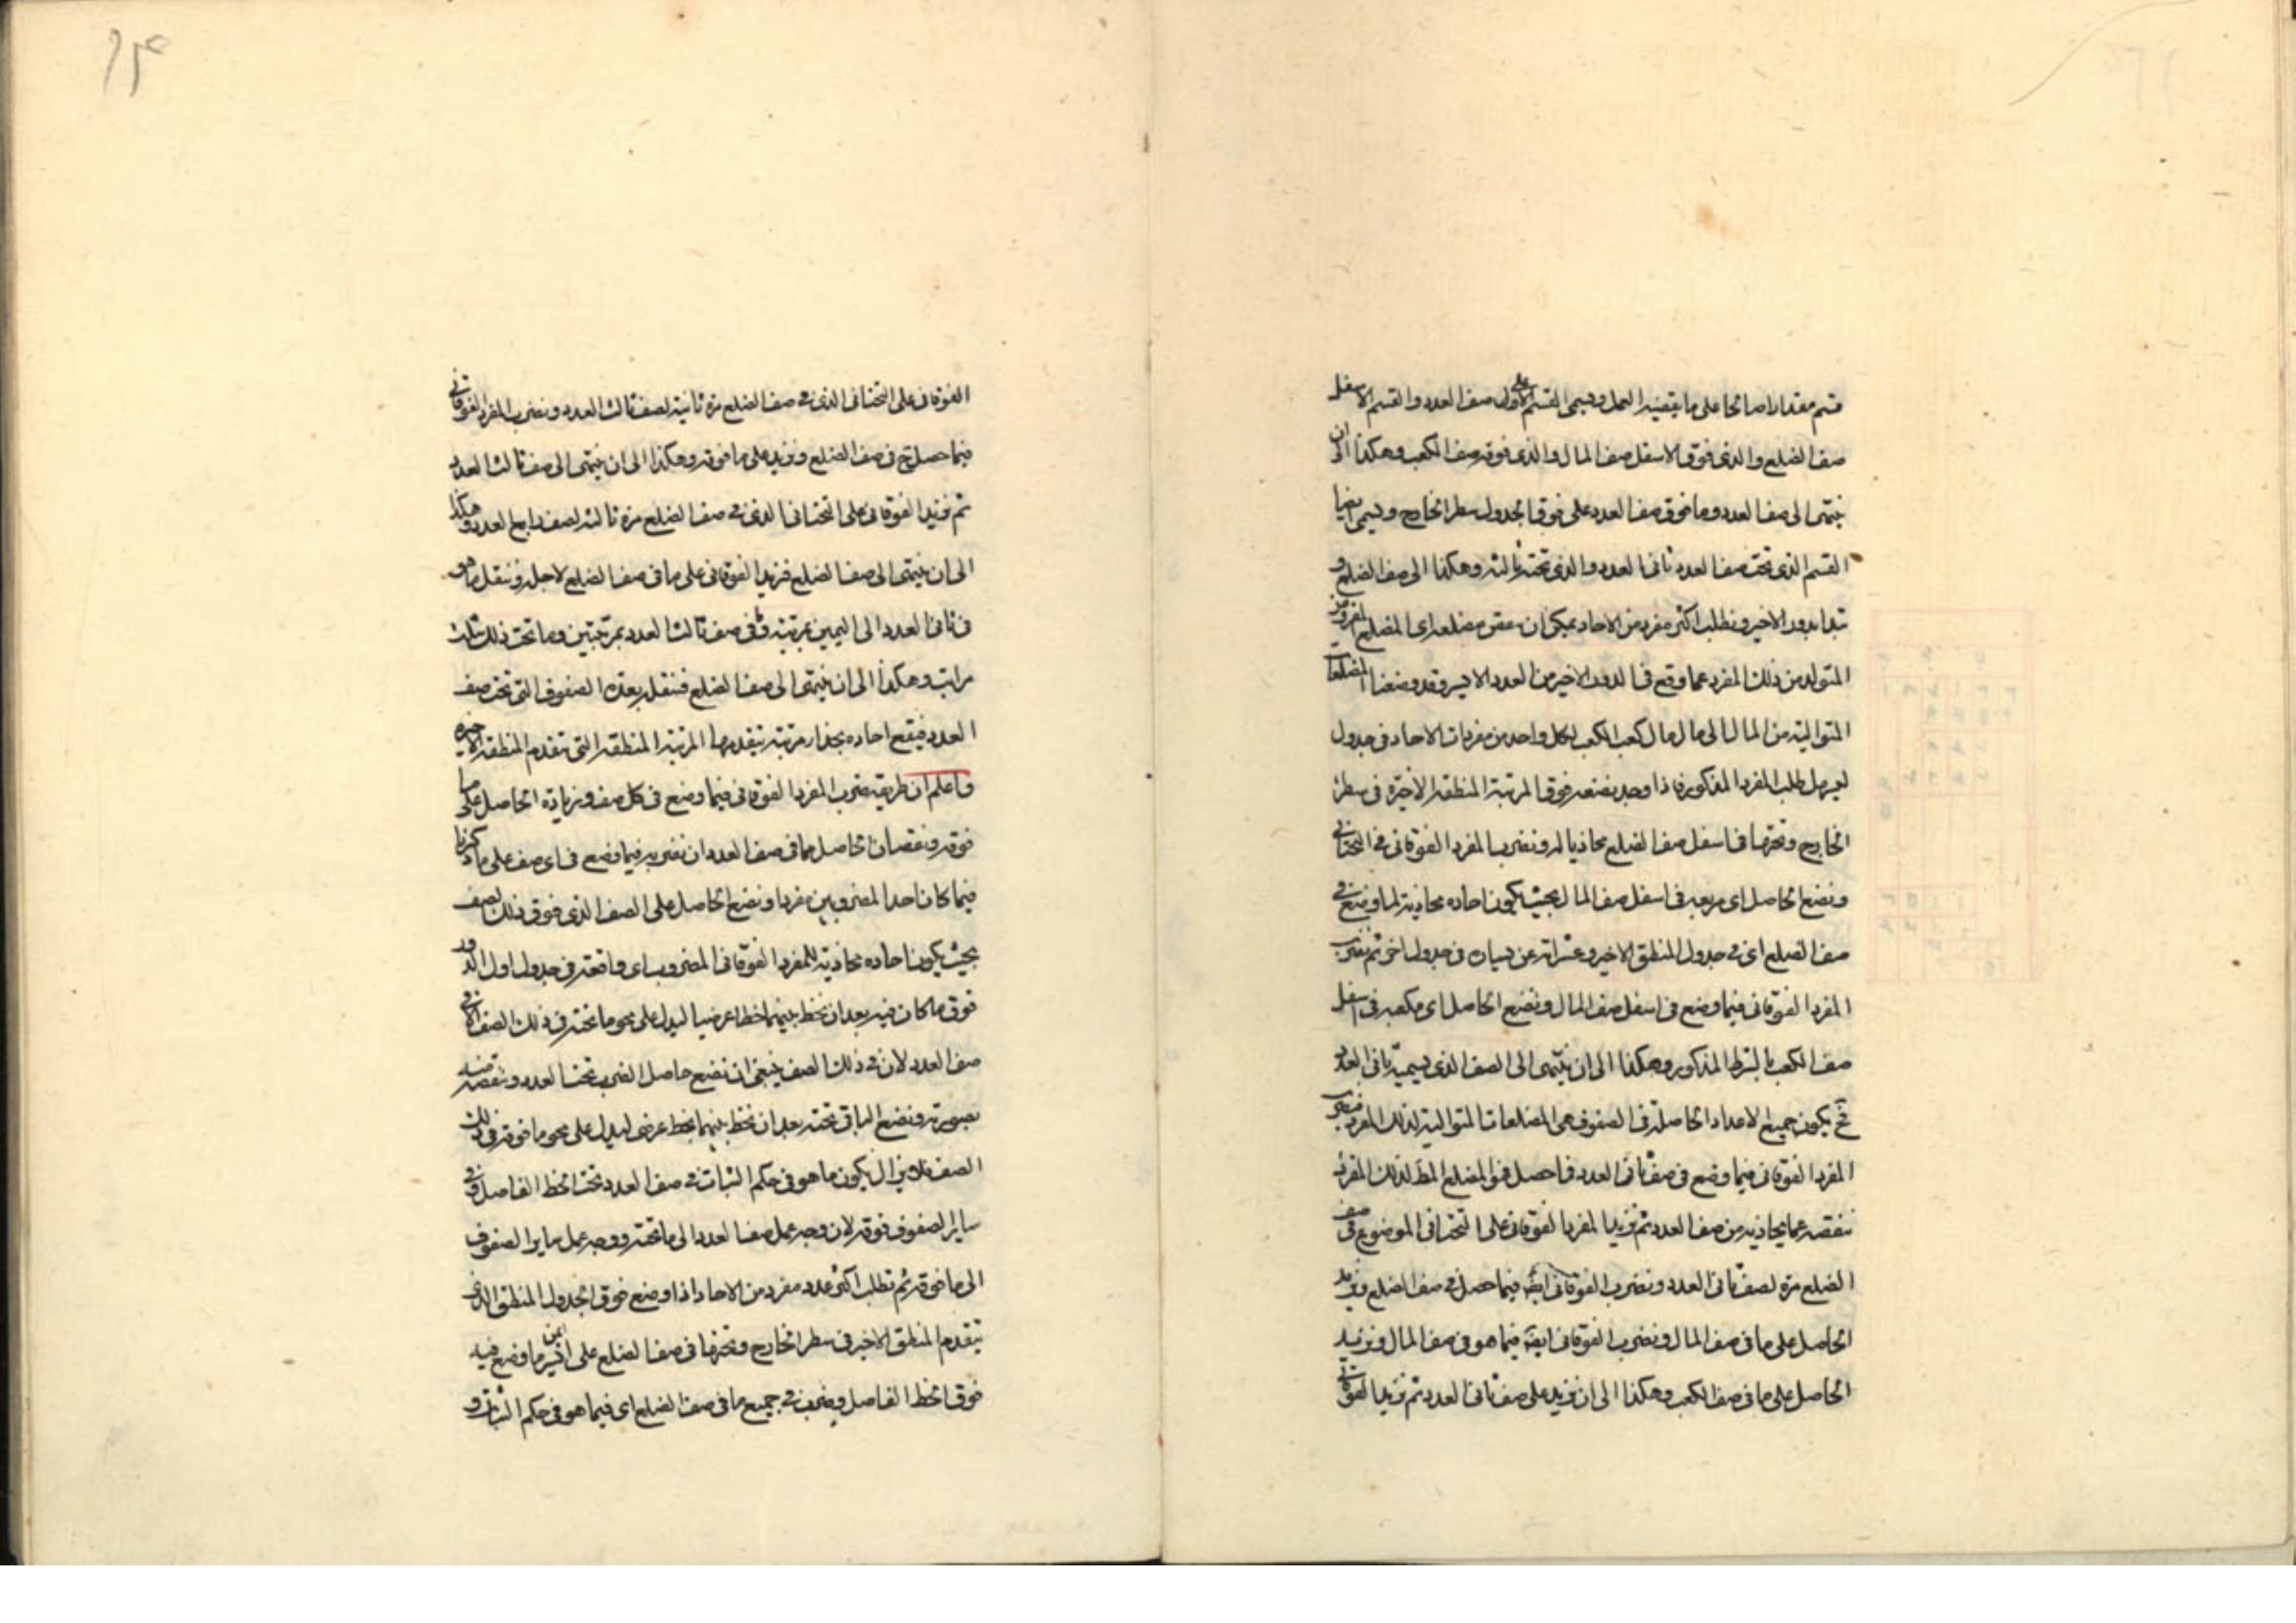 قسم مقدارا صالحا على ما يقتضيه العمل ويسمى القسم الاول على صف العدد والقسم الاسفل
صف الضلع والذى فوق الاسفل صف المال والذى فوقه صف الكعب وهكذا الى ان
ينتهى الى صف العدد وما فوق صف العدد على فوق الجدول سطر الخارج ويسمى ايضا
القسم الذى تحت صف العدد ثانى العدد والذى تحته ثالثه وهكذا الى صف الضلع و
نبدا بدور الاخير ونطلب اكثر مفرد من الاحاد يمكن ان ينقص مضلعه اى المضلع المفروض
المتولد من ذلك المفرد عما وقع فى الدور الاخير من العدد الاخير وقد وضعنا المضلعات
المتوالية من المال الى مال مال كعب الكعب لكل واحد من مفردات الاحاد فى جدول
ليسهل طلب المفرد المذكور فاذا وجد نضعه فوق المرتبة المنطقة الاخيرة فى سطر
الخارج وتحتها فى اسفل صف الضلع محاذيا له ونضرب المفرد الفوقانى فى التحتانى
ونضع الحاصل اى مربعه فى اسفل صف المال بحيث يكون احاده محاذية لما وضع فى
صف الضلع اى فى جدول المنطق الاخير وعشراته عن يساره فى جدول اخر ثم نضرب
المفرد الفوقانى فيما وضع فى اسفل صف المال ونضع الحاصل اى مكعبه فى اسفل
صف الكعب بالشرط المذكور وهكذا الى ان ينتهى الى الصف الذى يسمى ثانى العدد
فح يكون جميع الاعداد الحاصلة فى الصفوف هى المضلعات المتوالية لذلك المفرد فنضرب
المفرد الفوقانى فيما وضع فى صف ثانى العدد فما حصل فهو المضلع المط لذلك المفرد
ننقصه عما يحاذيه من صف العدد ثم نزيد المفرد الفوقانى على التحتانى الموضوع فى صف
الضلع مرة لصف ثانى العدد ونضرب الفوقانى ايضا فيما حصل فى صف الضلع ونزيد
الحاصل على ما فى صف المال ونضرب الفوقانى ايضا فيما هو فى صف المال ونزيد
الحاصل على ما فى صف الكعب وهكذا الى ان نزيد على صف ثانى العدد ثم نزيد الفوقانى
الفوقانى على التحتانى الذى فى صف الضلع مرة ثانية لصف ثالث العدد ونضرب المفرد الفوقانى
فيما حصل ح فى صف الضلع ونزيد على ما فوقه وهكذا الى ان ينتهى الى صف ثالث العدد
ثم نزيد الفوقانى على التحتانى الذى فى صف الضلع مرة ثالثة لصف رابع العدد وهكذا
الى ان ينتهى الى صف الضلع فنزيد الفوقانى على ما فى صف الضلع لاجله وننقل ما هو
فى ثانى العدد الى اليمين بمرتبة وفى صف ثالث العدد بمرتبتين وما تحت ذلك بثلث
مراتب وهكذا الى ان ينتهى الى صف الضلع فننقل بعدة الصفوف التى تحت صف
العدد فيقع احاده بحذاء مرتبة يتقدمها المرتبة المنطقة التى تتقدم المنطقة الاخيرة
واعلم ان طريقة ضرب المفرد الفوقانى فيما وضع فى كل صف وزيادة الحاصل على ما
فوقه ونقصان الحاصل مما فى صف العدد ان نضربه فيما وضع فى اى صف على ما ذكرنا
فيما كان احد المضروبين مفردا ونضع الحاصل على الصف الذى فوق ذلك الصف
بحيث يكون احاده محاذية للمفرد الفوقانى المضروب اى واقعة فى جدول اول الدور
فوق ما كان فيه بعد ان نخط بينهما خطا عرضيا ليدل على محو ما تحته فى ذلك الصف الا فى
صف العدد لان فى ذلك الصف ينبغى ان نضع حاصل الضرب تحت العدد وننقصه منه
بصورته ونضع الباقى تحته بعد ان نخط بينهما بخط عرضى ليدل على محو ما فوقه فى ذلك
الصف فلا يزال يكون ما هو فى حكم الثبات فى صف العدد تحت الخط الفاصل وفى
ساير الصفوف فوقه لان وجه عمل صف العدد الى ما تحته ووجه عمل ساير الصفوف
الى ما فوقه ثم نطلب اكثر عدد مفرد من الاحاد اذا وضع فوق الجدول المنطق الذى
يتقدم المنطق الاخير فى سطر الخارج وتحتها فى صف الضلع على ايمن ما وضع فيه
فوق الخط الفاصل ويضرب فى جميع ما فى صف الضلع اى فيما هو فى حكم الثبات و